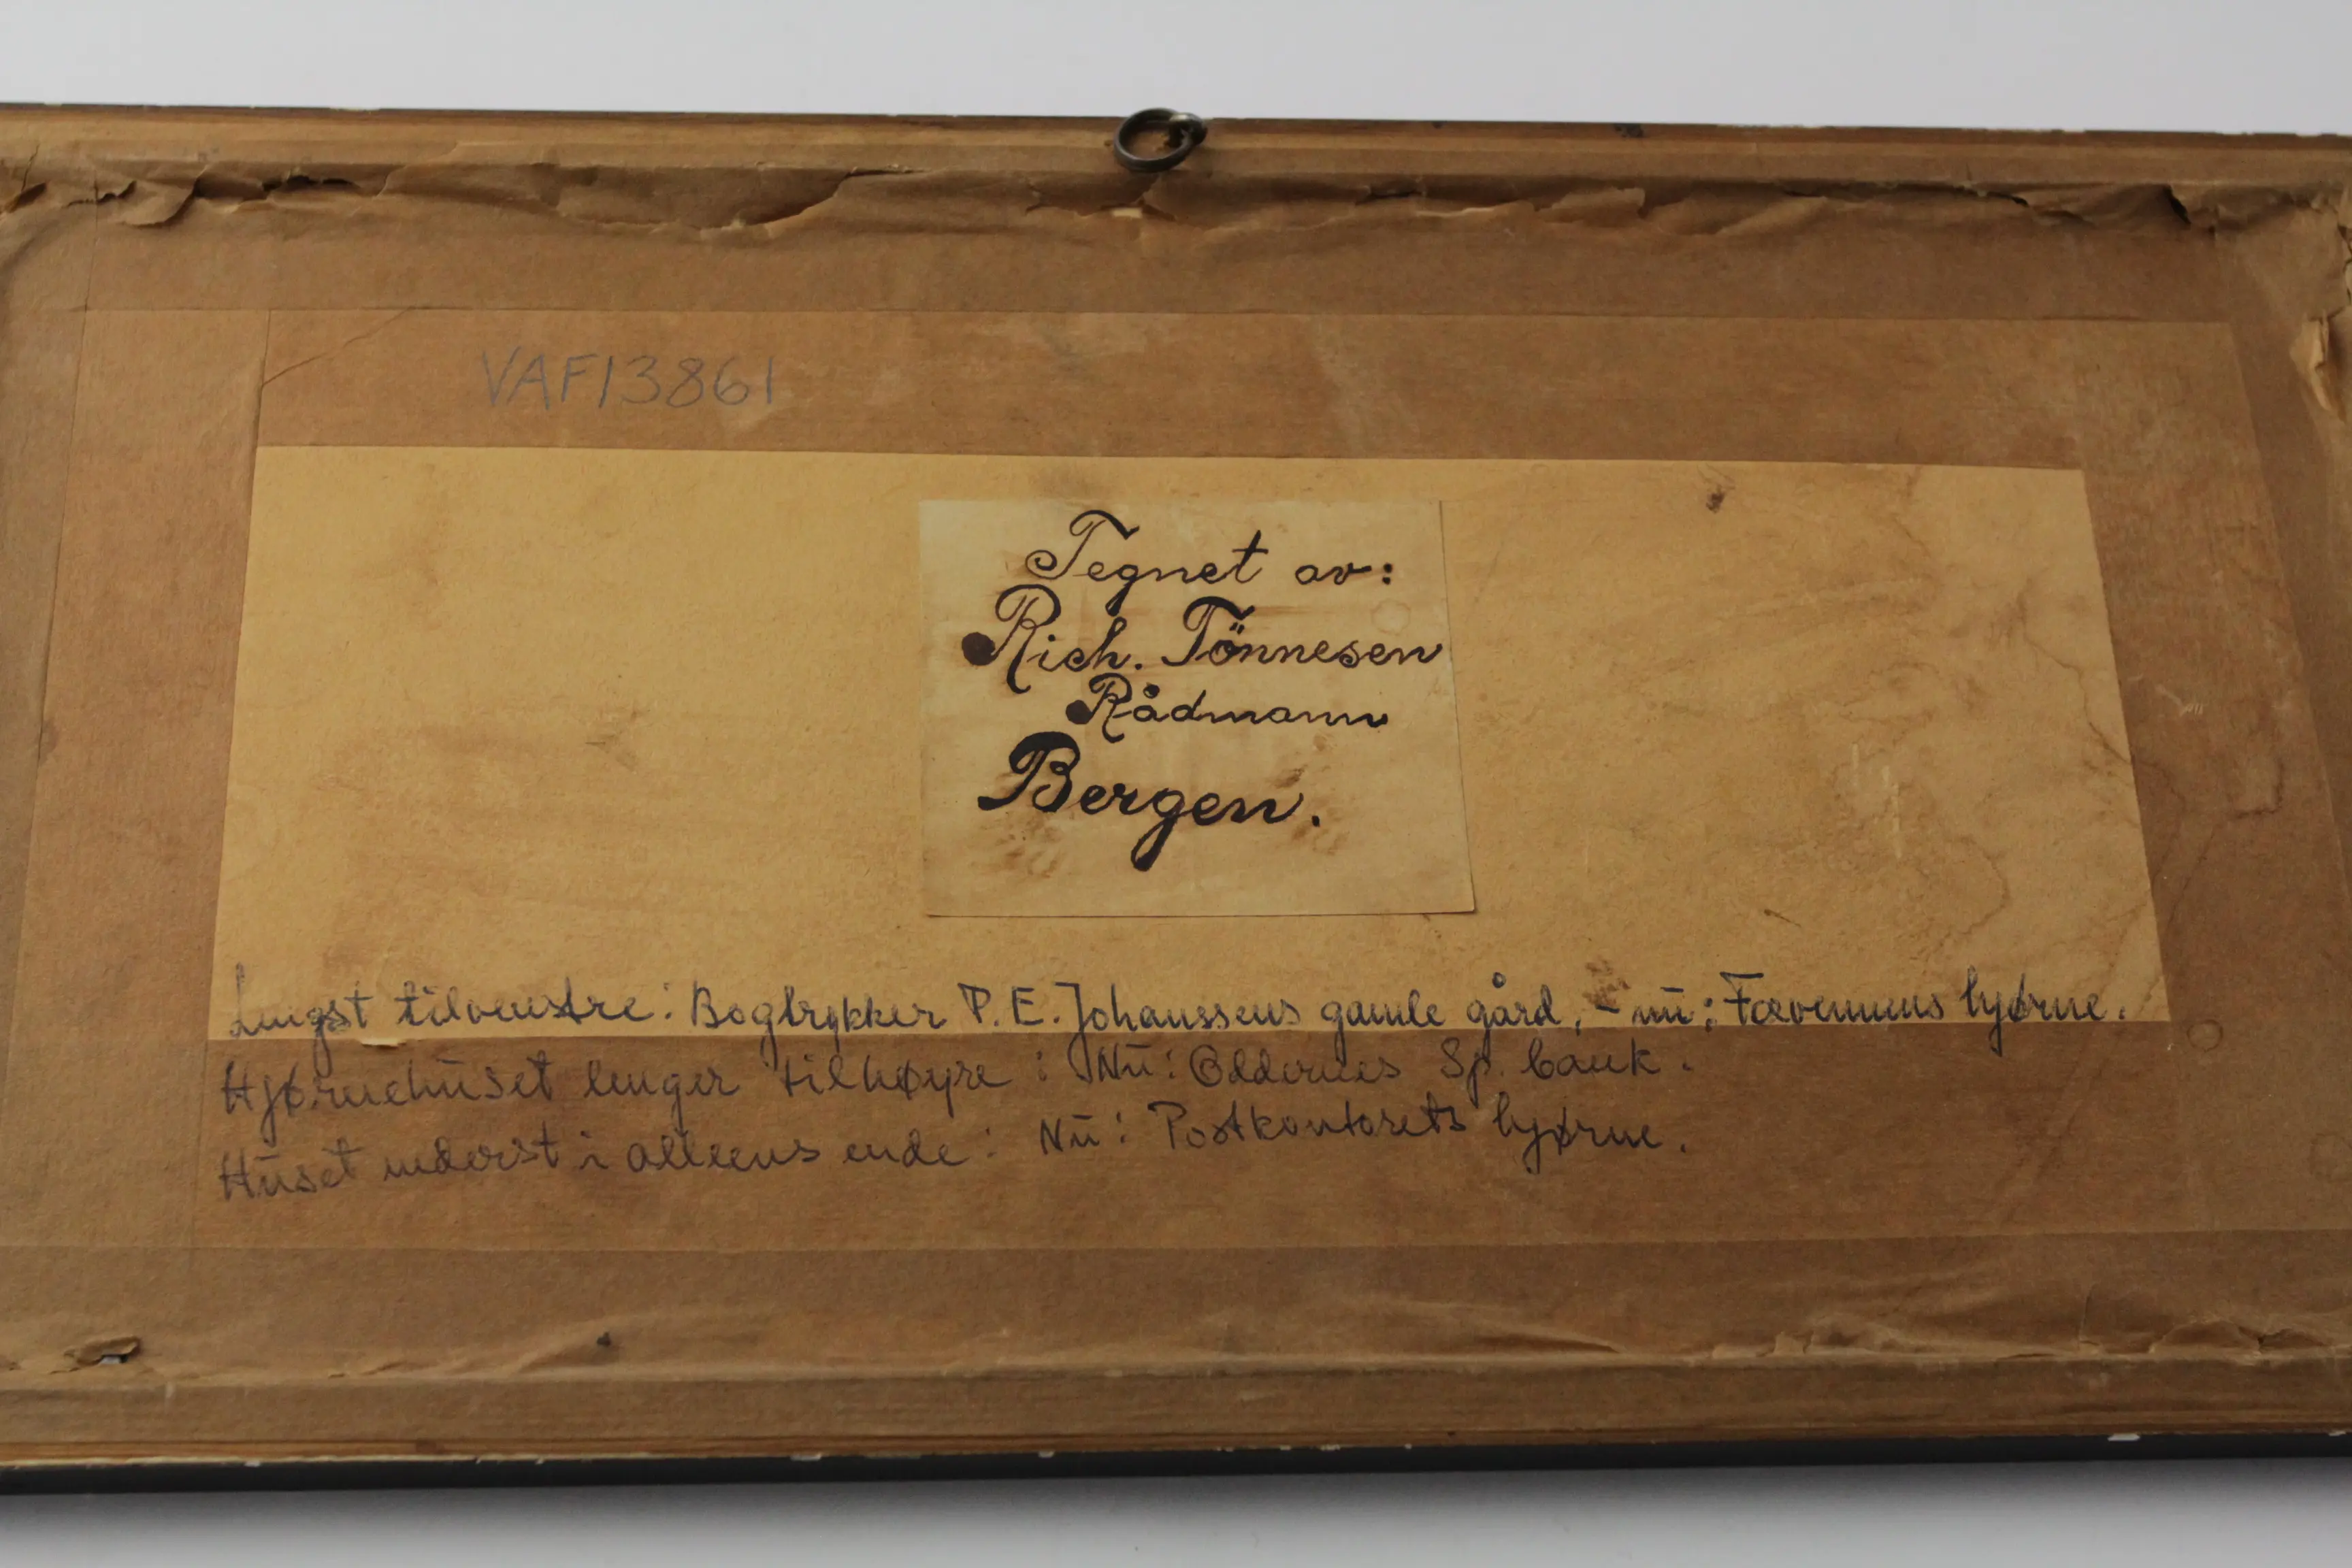 VAF13861
Tegnet av:
Rich. Tönnesen
Rådmann
Bergen.
Lengst tilvenstre: Bogtrykker P. E. Johanssens gamle gård, - nu: hjørne.
Hjørnehuset lenger tilhøyre: Nu: Oddernes Sp. bank.
Huset nederst i alleens ende: Nu: Postkontorets hjørne.